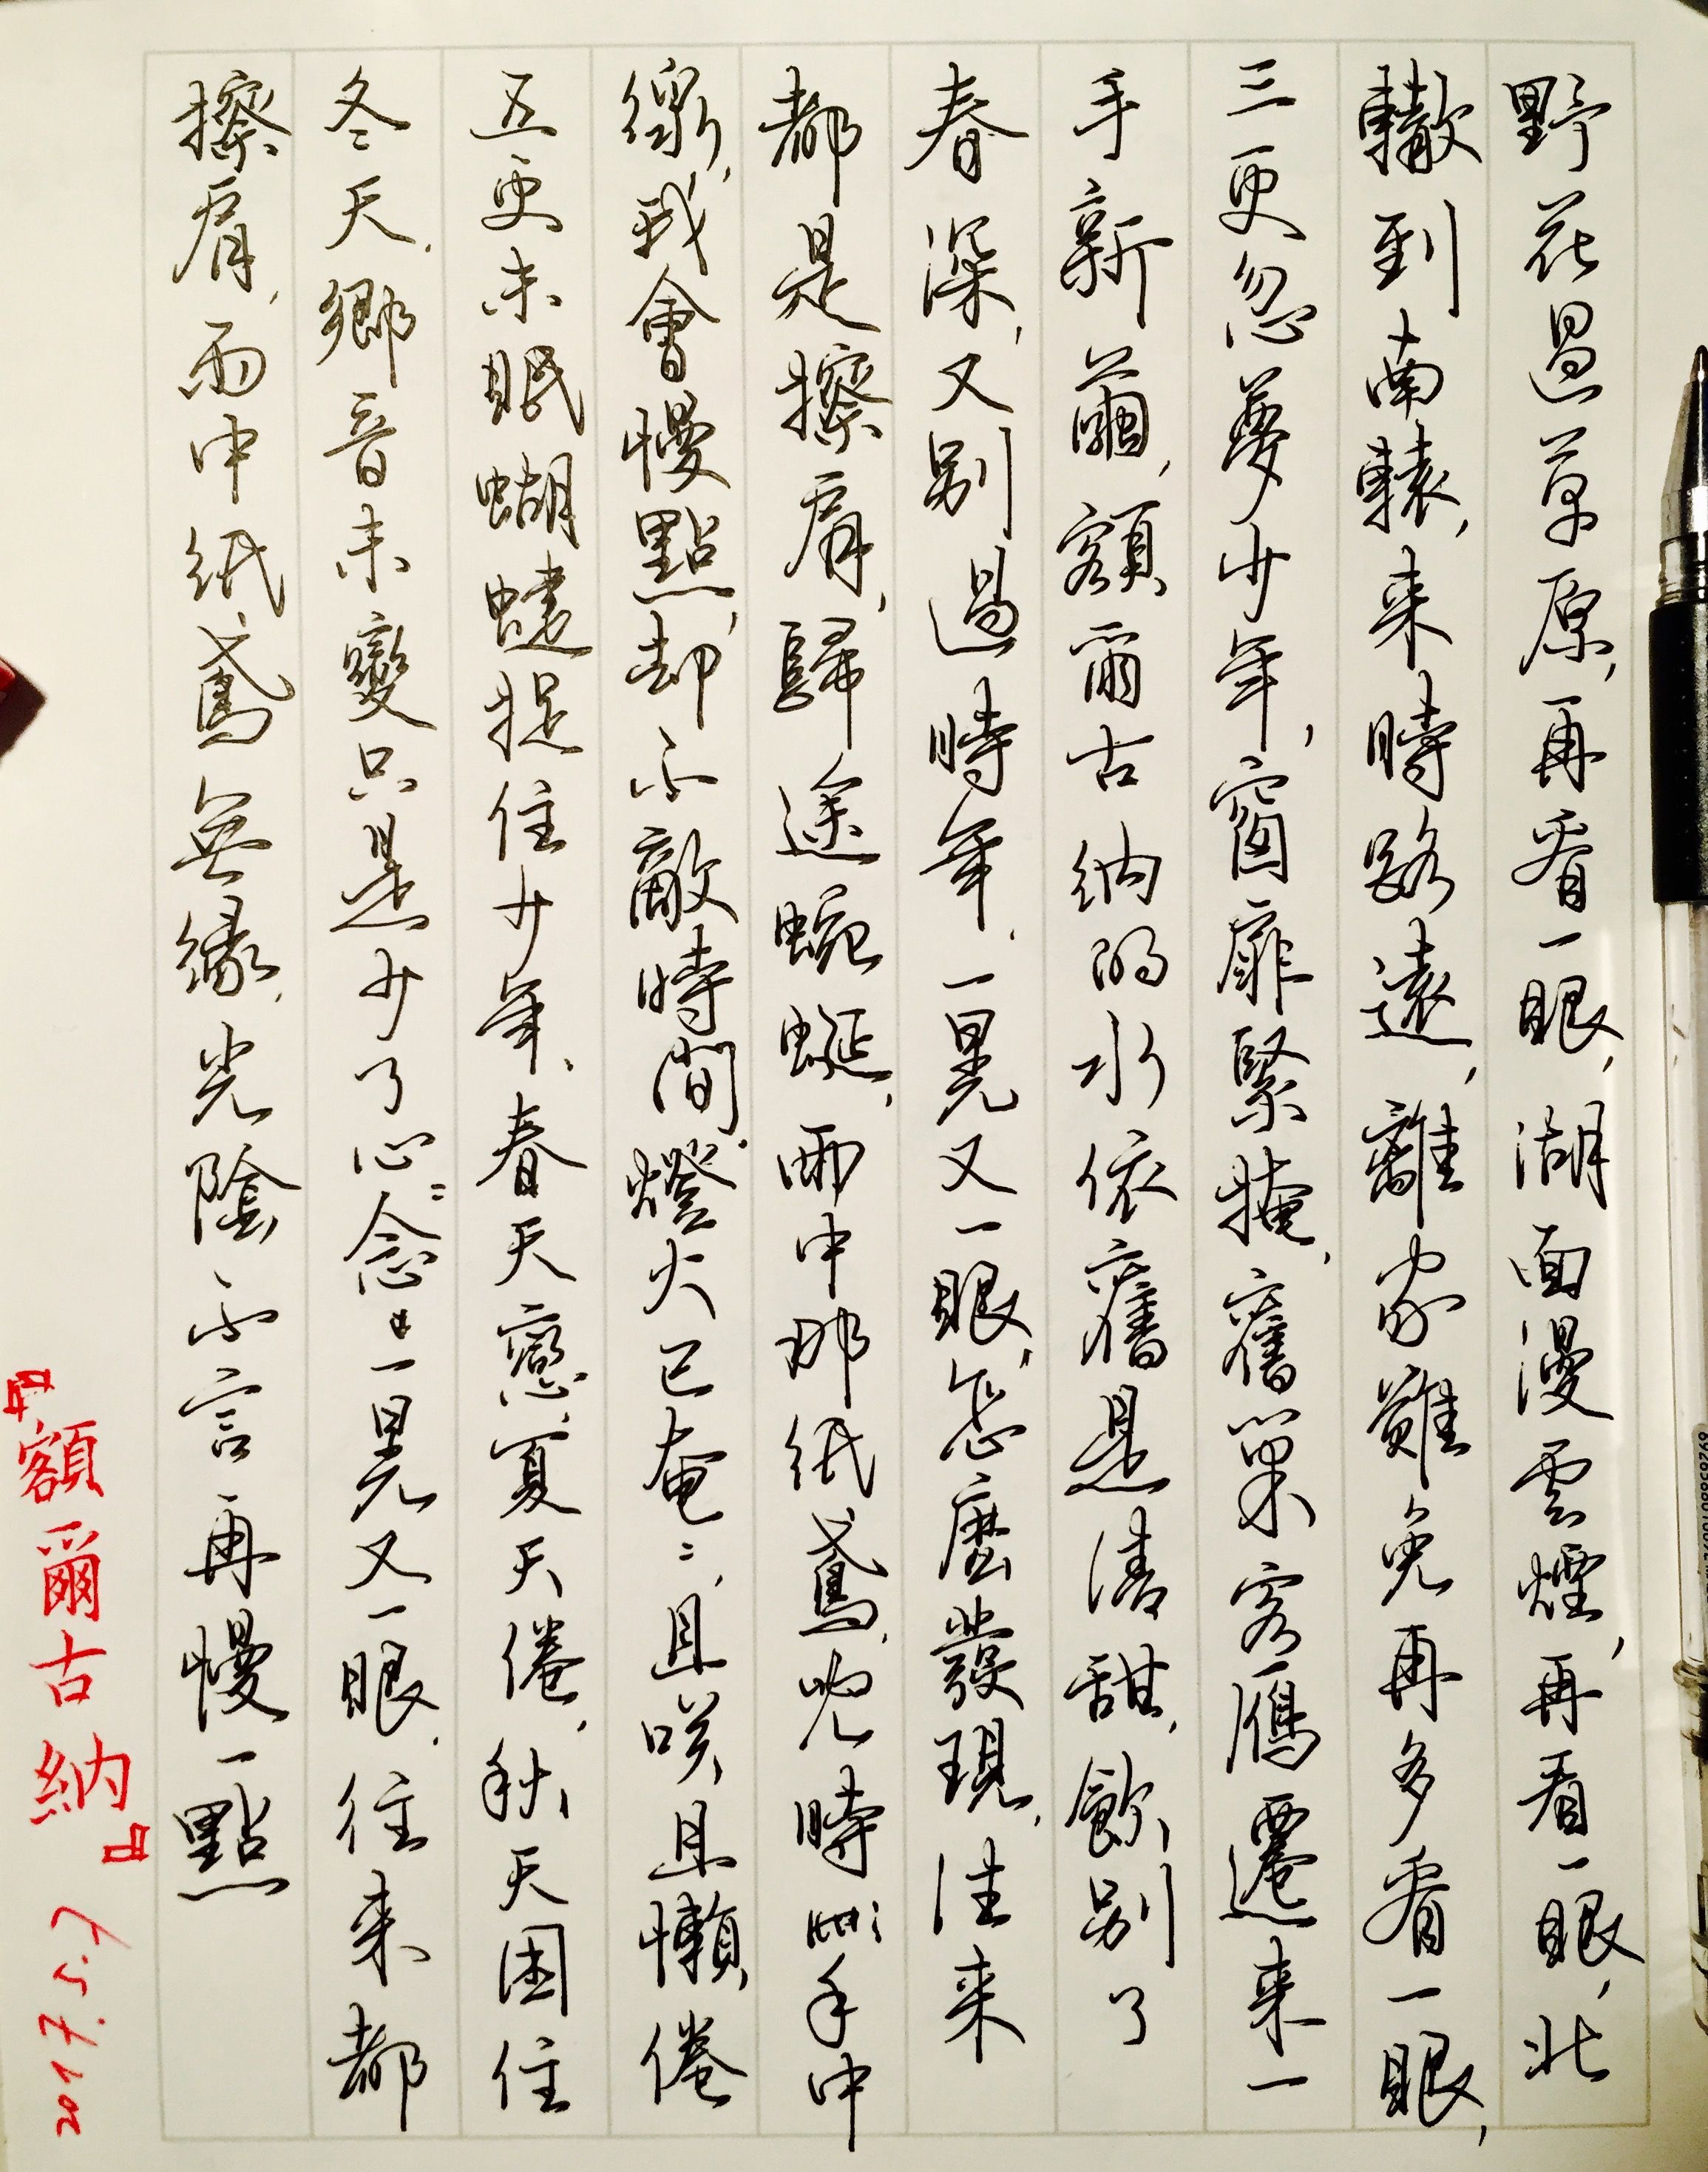 野花過草原，再看一眼，湖面漫雲煙，再看一眼，北
轍到南轅，来時路遠，離家難免再多看一眼，
三更忽夢少年，窗扉緊掩，舊巢客鴈遷来一
手新繭，額爾古納的水依舊是清甜，飲别了
春深，又别過時年，一晃又一眼，怎麽發現，往来
都是擦肩，歸途蜿蜒，雨中那紙鳶，兒時手中
我會慢點，却不敵時間，燈火已奄〻，且咲且懶倦
五更未眠蝴蝶捉住少年，春天戀，夏天倦，秋天困住
冬天，鄉音未變只是少了心〻念〻一晃又一眼，往来都
擦肩，雨中紙鳶無緣，光陰不言再慢一點
『額爾古納』
2017.5.7